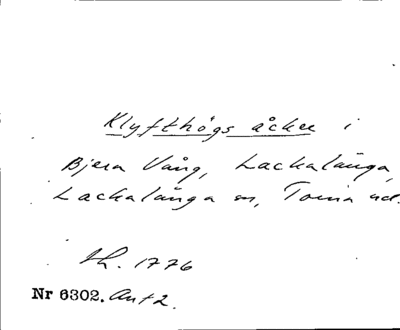 Klyfthögs åcker i
Bjera Vång, Lackalänga,
Lackalänga sn, Torna hd.
th. 1776
Nr 6302. Ant 2.